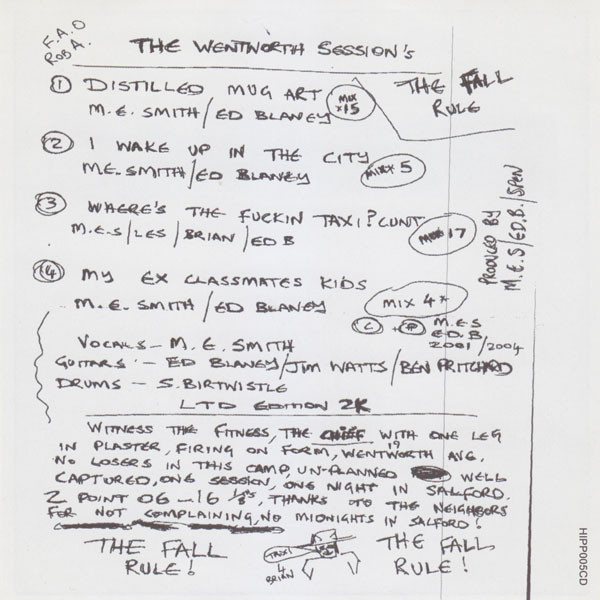 F.A.O
ROB A.
THE WENTWORTH SESSION'S
THE FALL
RULE
1 DISTILLED MUG ART
M.E. SMITH/ED BLANEY
MIX *15
2 I WAKE UP IN THE CITY
M.E. SMITH/ED BLANEY
MIX* 5
3 WHERE'S THE FUCKIN TAXI? CUNT
M.E.S/LES/BRIAN/ED B
MIX 17
4 MY EX CLASSMATES KIDS
M.E. SMITH/ED BLANEY
MIX 4*
PRODUCED BY
M.E.S/ED.B./SPEN
C + P M.E.S
ED.B.
2001/2004
VOCALS - M.E. SMITH
GUITARS - ED BLANEY/JIM WATTS/BEN PRITCHARD
DRUMS - S. BIRTWISTLE
LTD EDITION 2K
WITNESS THE FITNESS, THE CHIEF WITH ONE LEG
IN PLASTER, FIRING ON FORM, 19 WENTWORTH AVE.
NO LOSERS IN THIS CAMP, UN-PLANNED WELL
CAPTURED, ONE SESSION, ONE NIGHT IN SALFORD.
2 POINT 06 - 16 1/8"s, THANKS TO THE NEIGHBORS
FOR NOT COMPLAINING, NO MIDNIGHTS IN SALFORD!
THE FALL
RULE!
TAXI
4
BRIAN
THE FALL
RULE!
HIPP005CD